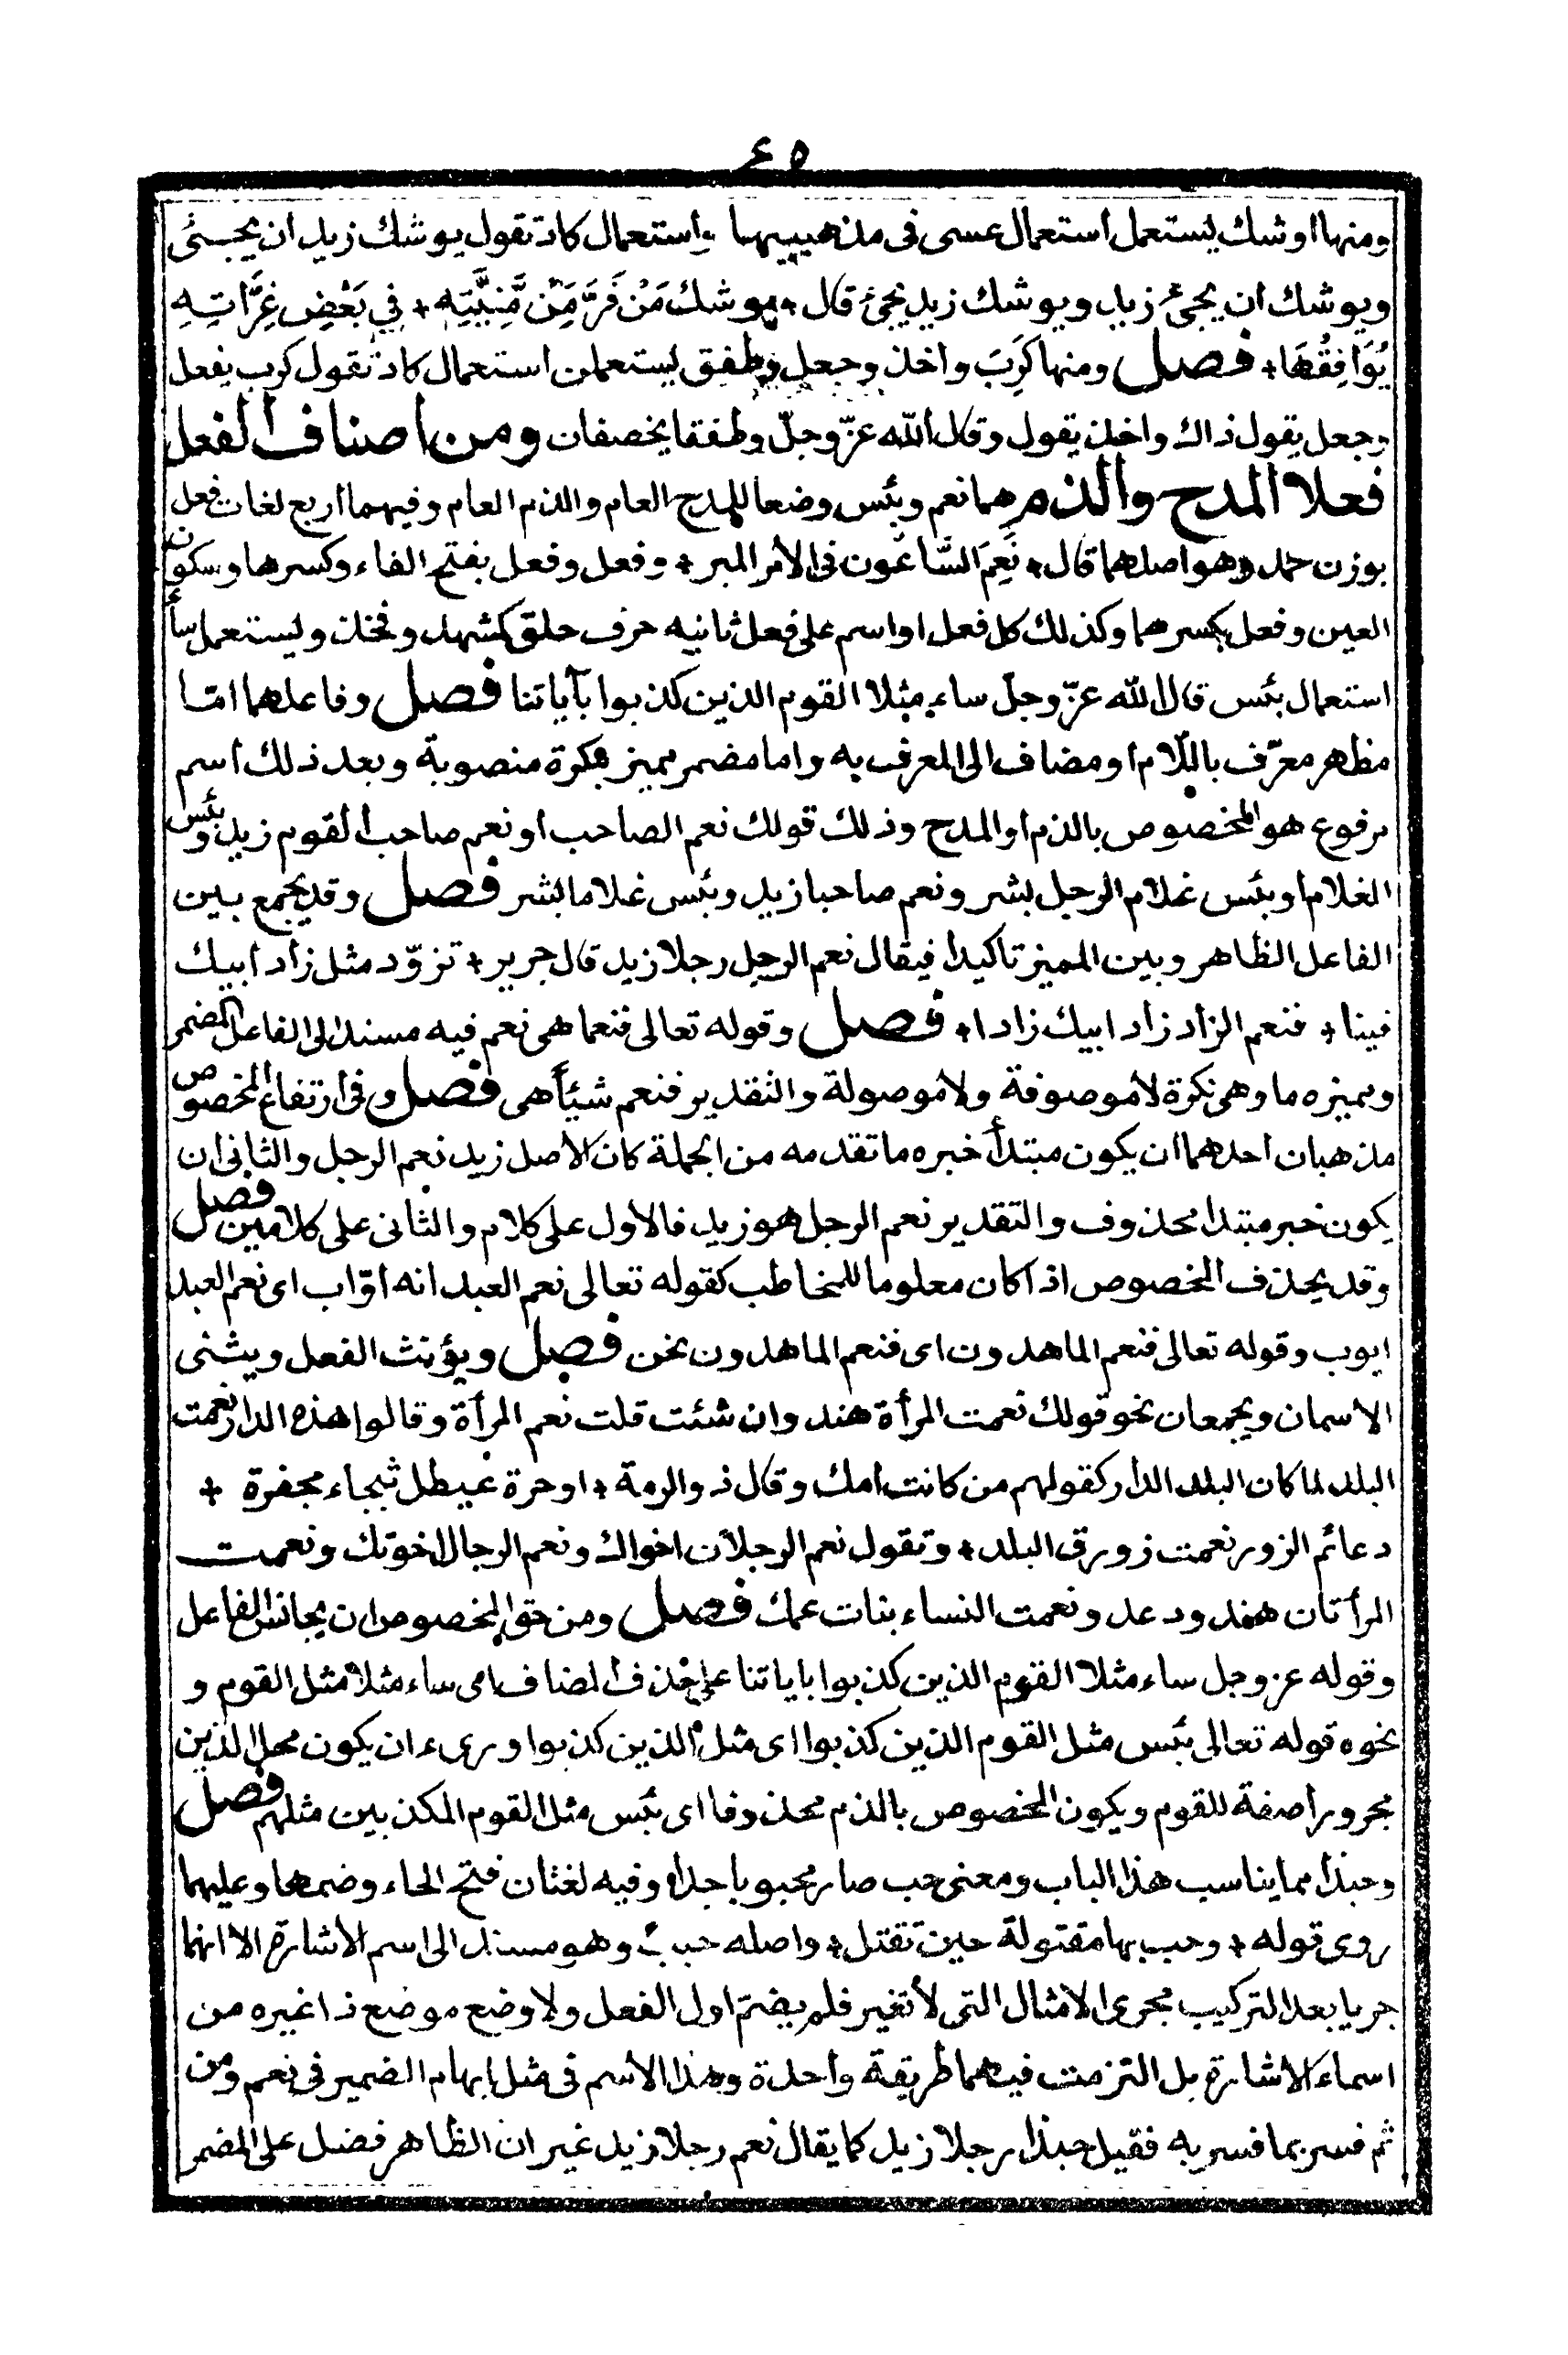 ٤٥
ومنها اوشك يستعمل استعمال عسى فى مذهبيها واستعمال كاد تقول يوشك زيد ان يجيئ
ويوشك ان يجئ زيد ويوشك زيد يجئ قال + يوشك مَنْ فَرَّ مِّنْ مَّنِيَّتِهٖ + فِي بَعْضِ غِرَّاتِهِ
يُوَافِقُهَا + فصل ومنها كَرَبَ واخذ وجعل وطفق يستعملن استعمال كاد تقول كرب يفعل
وجعل يقول ذاك واخذ يقول وقال الله عزّ وجلّ وطفقا يخصفان ومن اصناف الفعل
فعلا المدح والذم هما نعم وبئس وضعا للمدح العام والذم العام وفيهما اربع لغات فعل
بوزن حمد وهو اصلهما قال + نَعِمَ السَّاعُون فى الأمر المبر + وفعل وفعل بفتح الفاء وكسرها وسكون
العين وفعل بكسرهما وكذلك كل فعل او اسم على فعل ثانيه حرف حلق كشهد وفخذ ويستعمل ساء
استعمال بئس قال الله عزّ وجلّ ساء مثلا القوم الذين كذبوا بآياتنا فصل وفاعلهما امّا
مظهر معرّف باللّام او مضاف الى المعرف به واما مضمر مميز بنكرة منصوبة وبعد ذلك اسم
مرفوع هو المخصوص بالذم او المدح وذلك قولك نعم الصاحب او نعم صاحب القوم زيد وبئس
الغلام او بئس غلام الرجل بشر ونعم صاحبا زيد وبئس غلاما بشر فصل وقد يجمع بين
الفاعل الظاهر وبين المميز تاكيدا فيقال نعم الرجل رجلا زيد قال جرير + تزوّد مثل زاد ابيك
فينا + فنعم الزاد زاد ابيك زادا + فصل وقوله تعالى فنعما هى نعم فيه مسند الى الفاعل المضمر
ومميزه ما وهى نكرة لا موصوفة ولا موصولة والتقدير فنعم شيئاً هى فصل وفى ارتفاع المخصوص
مذهبان احدهما ان يكون مبتدأ خبره ما تقدمه من الجملة كان الاصل زيد نعم الرجل والثانى ان
يكون خبر مبتدا محذوف والتقدير نعم الرجل هو زيد فالاول على كلام والثانى على كلامين فصل
وقد يحذف المخصوص اذا كان معلوما للمخاطب كقوله تعالى نعم العبد انه اوّاب اى نعم العبد
ايوب وقوله تعالى فنعم الماهدون اى فنعم الماهدون نحن فصل ويؤنث الفعل ويثنى
الاسمان ويجمعان نحو قولك نعمت المرأة هند وان شئت قلت نعم المرأة وقالوا هذه الدار نعمت
البلد لما كان البلد الدار كقولهم من كانت امك وقال ذو الرمة + او حرة عيطل ثبجاء مجفرة +
دعائم الزور نعمت زورق البلد + وتقول نعم الرجلان اخواك ونعم الرجال اخوتك ونعمت
المرأتان هند ودعد ونعمت النساء بنات عمك فصل ومن حق المخصوص ان يجانس الفاعل
وقوله عز وجل ساء مثلا القوم الذين كذبوا باياتنا على حذف المضاف اى ساء مثلا مثل القوم و
نحوه قوله تعالى بئس مثل القوم الذين كذبوا اى مثل الذين كذبوا ورىء ان يكون محل الذين
مجرورا صفة للقوم ويكون المخصوص بالذم محذوفا اى بئس مثل القوم المكذبين مثلهم فصل
وحبذا مما يناسب هذا الباب ومعنى حب صار محبوبا جدا وفيه لغتان فتح الحاء وضمها وعليهما
روى قوله + وحب بها مقتولة حين تقتل + واصله حبب وهو مسند الى اسم الاشارة الا انهما
جريا بعد التركيب مجرى الامثال التى لا تغير فلم يضمّ اول الفعل ولا وضع موضع ذا غيره من
اسماء الاشارة بل التزمت فيهما طريقة واحدة وهذا الاسم فى مثل ابهام الضمير فى نعم ومن
ثم فسر بما فسر به فقيل حبذا رجلا زيد كما يقال نعم رجلا زيد غير ان الظاهر فضل على المضمر